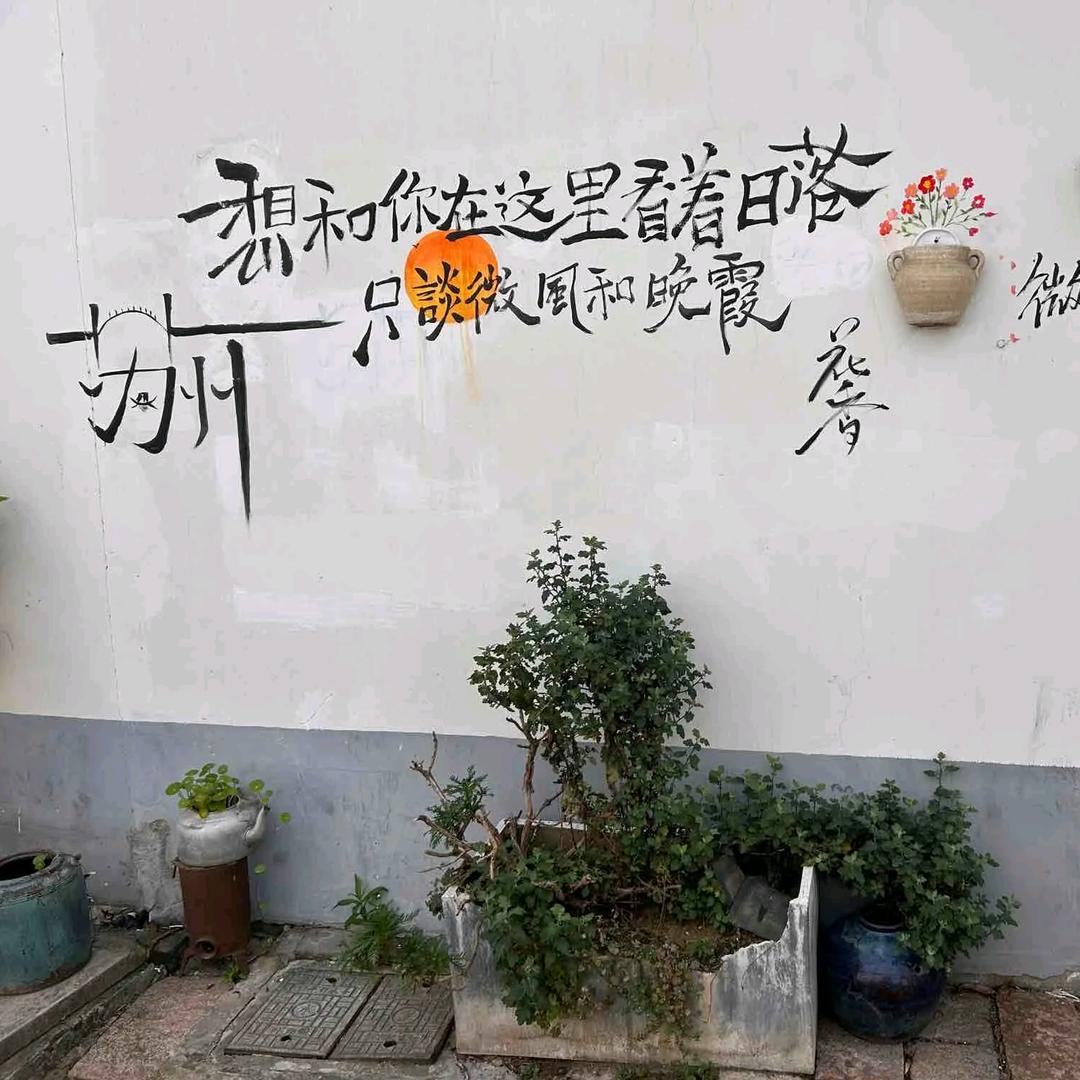 想和你在这里看着日落
只談微風和晚霞
苏州
花香
微